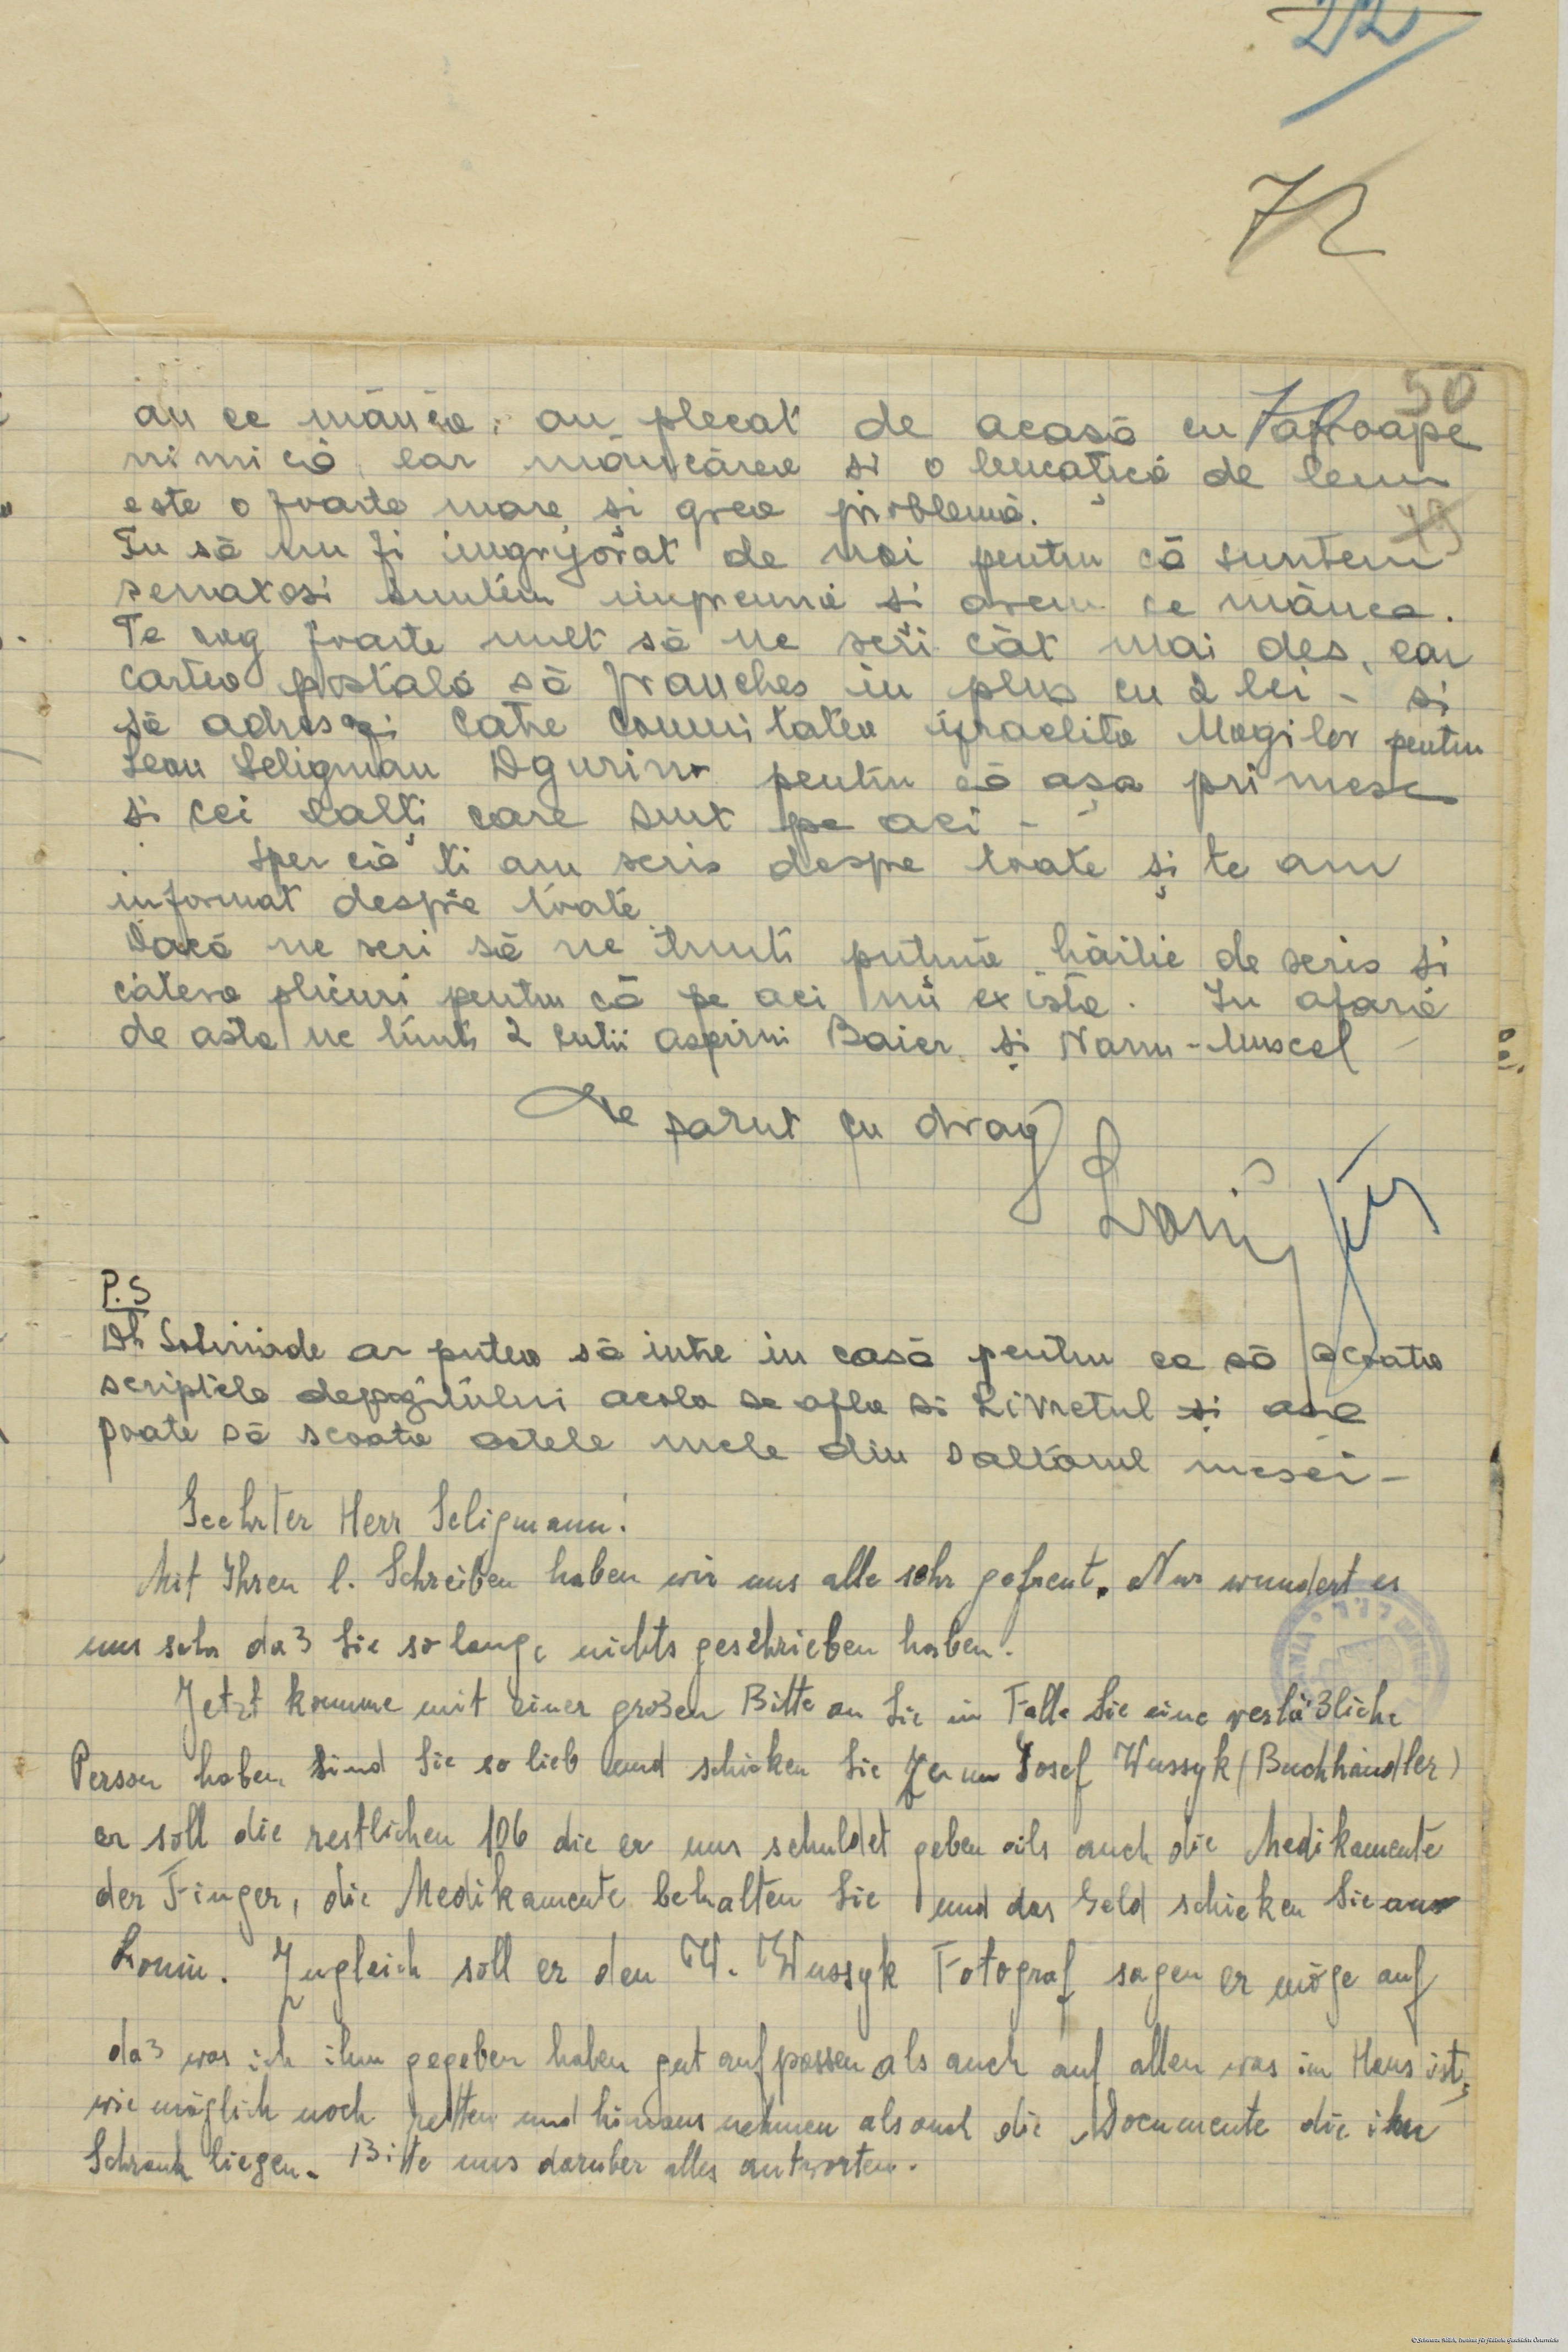 22
72
50
an ce mânca, au plecat de acasă cu aproape
nimică, ear mâncărea si o bucatică de lemn
este o foarte mare si grea problemă.
49
Tu să nu fi ingrijorat de noi pentru că suntem
senatosi suntem impreună si avem ce mânca.
Te rog foarte mult să ne scri cât mai des, ear
cartea postală să franches in plus cu 2 lei - si
să adresezi catre comunitatea izraelita Mogilov pentru
Leon Seligman pentru că aşa primesc
si cei l'alţi care sunt pe aci -
Sper că ti am scris despre toate şi te am
informat despre toate
Dacă ne scri să ne trimiti putină hârtie de scris si
câteva plicuri pentru că pe aci nu exista. In afară
de asta ne trimiti 2 cutii aspirini Baier şi Nanu-Muscel
Te sarut cu drag
Loni
P.S
Dl ar putea să intre in casă pentru ca să scoata
scriptele depozitului acolo se afla si Livretul şi asa
poate să scoata actele mele din saltarul mesei -
Geehrter Herr Seligmann!
Mit Ihren l. Schreiben haben wir uns alle sehr gefreut. Nur wundert es
uns sehr daß Sie so lange nichts geschrieben haben.
Jetzt komme mit einer großen Bitte an Sie im Falle Sie eine verläßliche
Person haben sind Sie so lieb und schicken Sie zum Josef Wussyk (Buchhändler)
er soll die restlichen 106 die er uns schuldet geben als auch die Medikamente
der Finger, die Medikamente behalten Sie und das Geld schicken Sie an
Lonin. Zugleich soll er den W. Wussyk Fotograf sagen er möge auf
daß was ich ihm gegeben haben gut aufpassen als auch auf allen was im Haus ist,
wie möglich noch retten und hinaus nehmen als auch die Documente die ihn
Schrank liegen. Bitte uns daruber alles antworten.